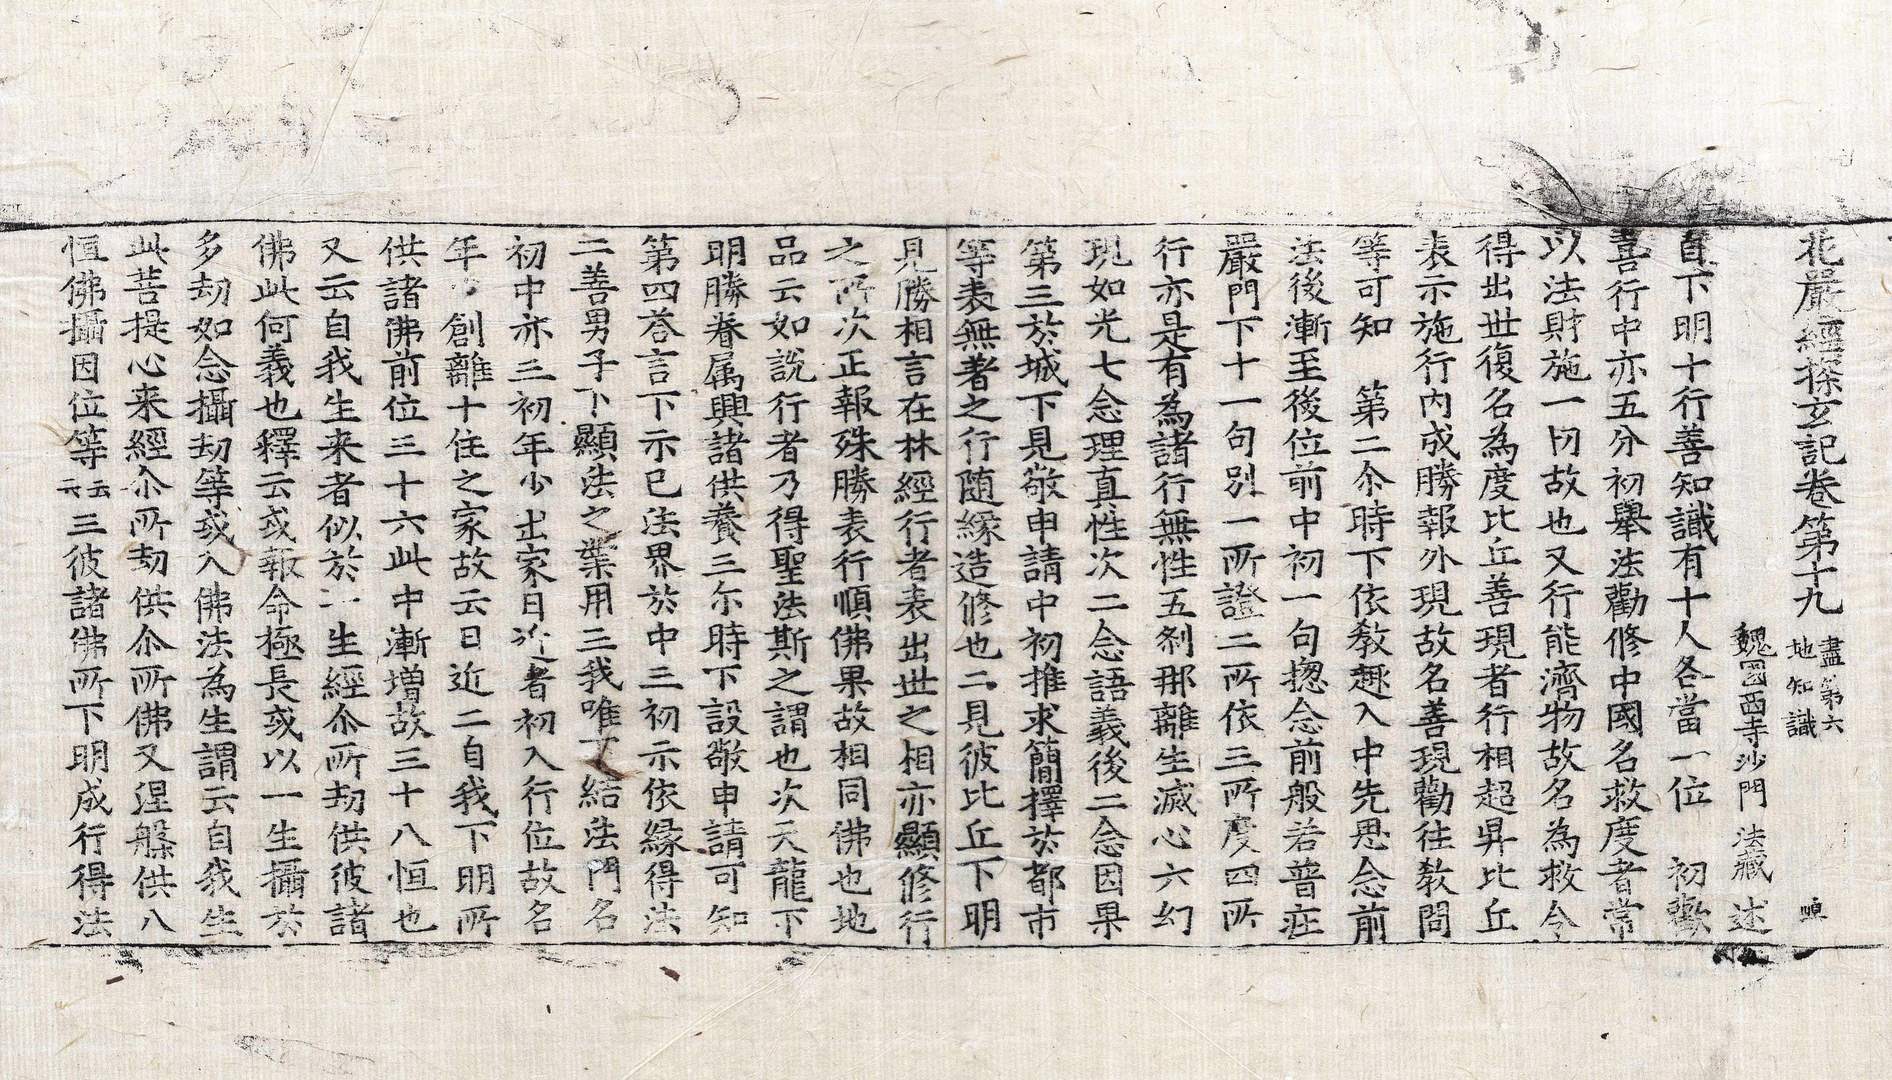 花嚴經探玄記卷第十九 盡第六地知識
魏國西寺沙門 法藏 述
自下明十行善知識有十人各當一位 初歡
喜行中亦五分初舉法勸修中國名救度者常
以法財施一切故也又行能濟物故名為救令
得出世復名為度比丘善現者行相超昇比丘
表示施行內成勝報外現故名善現勸往敎問
等可知 第二尒時下依敎趣入中先思念前
法後漸至後位前中初一句揔念前般若普疘
嚴門下十一句別一所證二所依三所度四所
行亦是有為諸行無性五刹那離生滅心六幻
現如光七念理真性次二念語義後二念因果
第三於城下見敬申請中初推求簡擇於都市
等表無著之行随緣造修也二見彼比丘下明
見勝相言在林經行者表出世之相亦顯修行
之所次正報殊勝表行順佛果故相同佛也地
品云如說行者乃得聖法斯之謂也次天龍下
明勝眷属興諸供養三尒時下設敬申請可知
第四荅言下示已法界於中三初示依緣得法
二善男子下顯法之業用三我唯下結法門名
初中亦三初年少出家日近者初入行位故名
年 創離十住之家故云日近二自我下明所
供諸佛前位三十六此中漸增故三十八恒也
又云自我生来者似於一生經尒所劫供彼諸
佛此何義也釋云或報命極長或以一生攝於
多劫如念攝劫等或入佛法為生謂云自我生
此菩提心来經尒所劫供尒所佛又涅槃供八
恒佛攝因位等云云三彼諸佛所下明成行得法